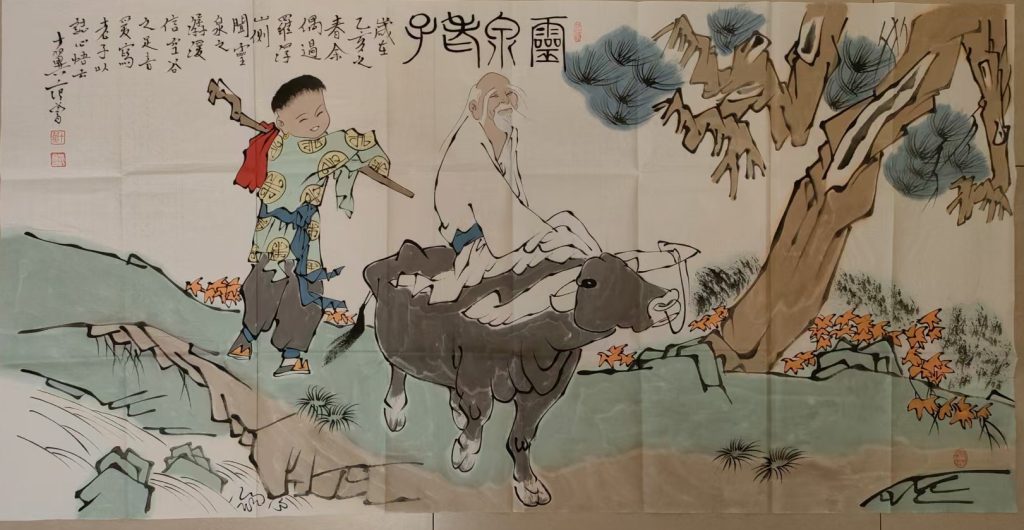 靈泉老子
歲在
乙亥之
春余
偶過
羅浮
山側
聞靈
泉之
潺湲
信空谷
之足音
爰寫
老子以
誌心悟云
十翼范曾